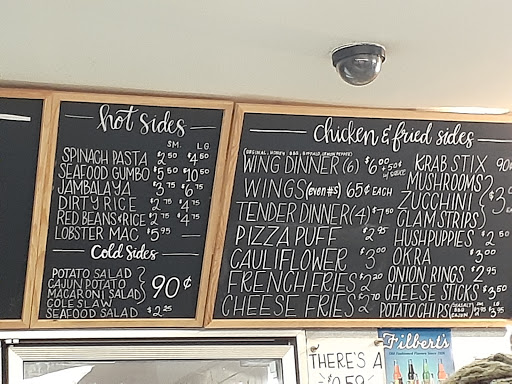 hot sides
SM. LG.
SPINACH PASTA $2.50 $4.50
SEAFOOD GUMBO $5.50 $10.50
JAMBALAYA $3.75 $6.75
DIRTY RICE $2.75 $4.75
RED BEANS & RICE $2.75 $4.75
LOBSTER MAC $5.95
Cold Sides
POTATO SALAD
CAJUN POTATO
MACARONI SALAD 90¢
COLESLAW
SEAFOOD SALAD $2.25
chicken & fried sides
(ORIGINAL, HONEY BBQ, BUFFALO, LEMON PEPPER)
WING DINNER (6) $6.00
WINGS (even #s) 65¢ EACH
TENDER DINNER (4) $7.50
PIZZA PUFF $2.95
CAULIFLOWER $3.00
FRENCH FRIES $2.20
CHEESE FRIES $2.70
KRAB STIX 90
MUSHROOMS
ZUCCHINI $3
CLAM STRIPS
HUSHPUPPIES $2.50
OKRA $3.00
ONION RINGS $2.95
CHEESE STICKS $3.50
POTATO CHIPS
Filbert's
THERE'S A